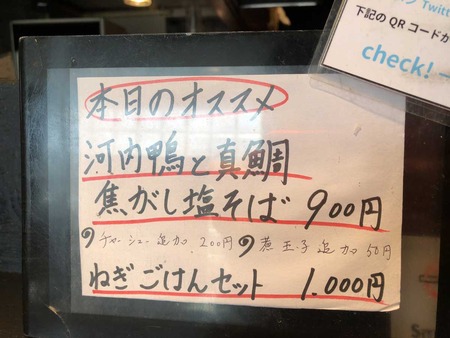 ン Twitt
下記の QR コードが
check!
本日のオススメ
河内鴨と真鯛
焦がし塩そば 900円
チャーシュー追加 200円 煮玉子追加 50円
ねぎごはんセット 1.000円